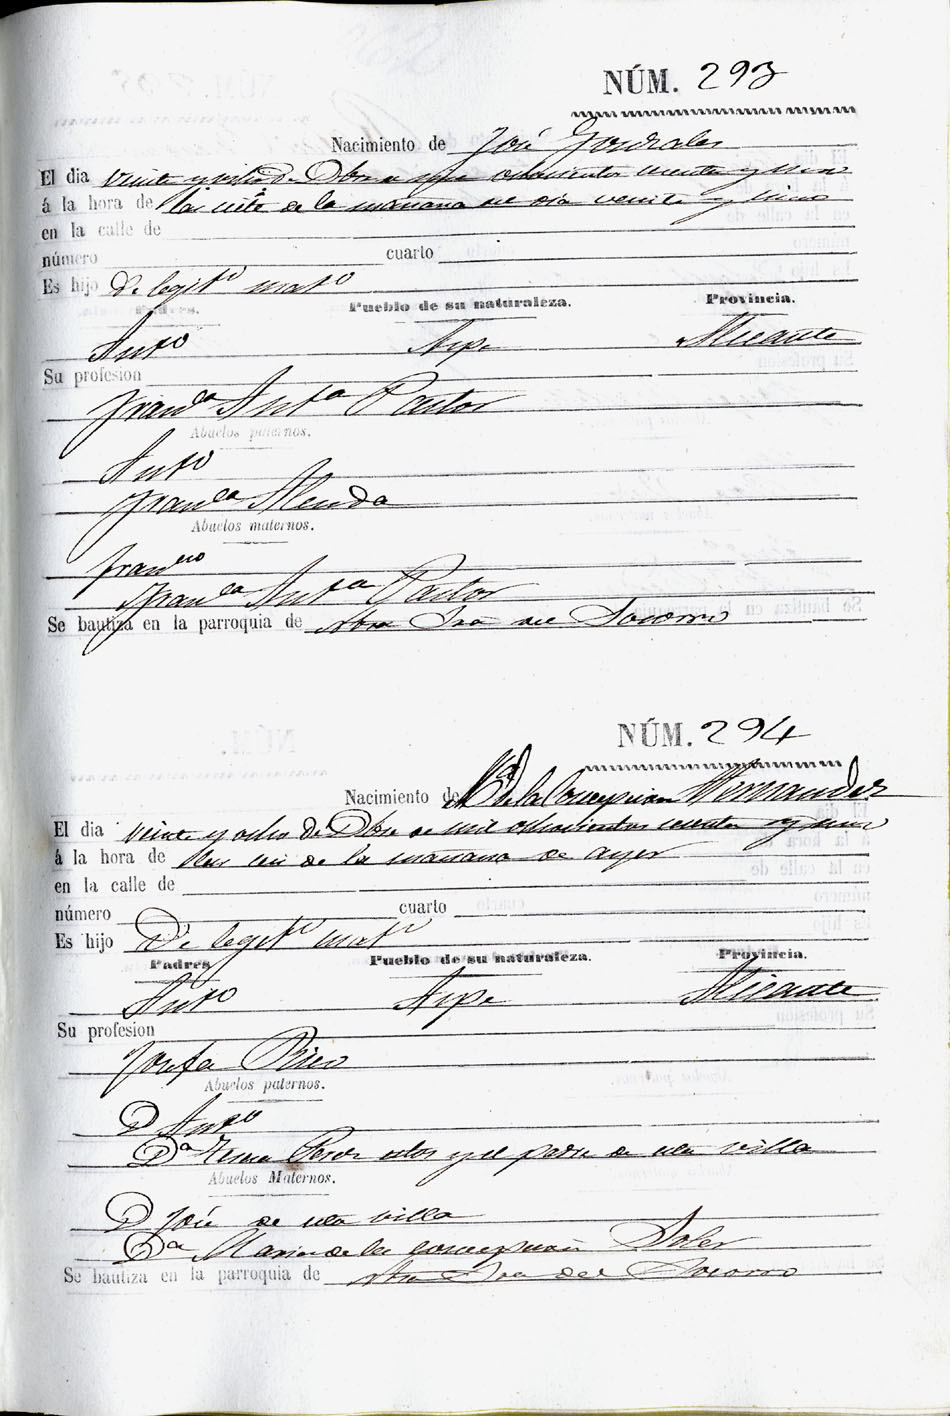 NÚM. 293
Nacimiento de José Gonzalez
El dia veinte y ocho de Dbre de mil ochocientos cuarenta y uno
á la hora de las siete de la mañana del dia veinte y cinco
en la calle de
número cuarto
Es hijo de legit.º mat.º
Padres. Pueblo de su naturaleza. Provincia.
Ant.º Aspe Alicante
Su profesion
Fran.ca Ant.a Pastor
Abuelos paternos.
Ant.º
Fran.ca Almoda
Abuelos maternos.
Fran.co
Fran.ca Ant.a Pastor
Se bautiza en la parroquia de Ntra Sra del Socorro
NÚM. 294
Nacimiento de M.a de la Concepcion Hernandez
El dia veinte y ocho de Dbre de mil ochocientos cuarenta y uno
á la hora de las seis de la mañana de ayer
en la calle de
número cuarto
Es hijo De legit.º mat.º
Padres Pueblo de su naturaleza. Provincia.
Ant.º Aspe Alicante
Su profesion
Josefa Rico
Abuelos paternos.
D Ant.º
D.a Teresa Perez estos y el padre de esta villa
Abuelos Maternos.
D José de esta villa
D.a Maria de la Concepcion Soler
Se bautiza en la parroquia de Ntra Sra del Socorro